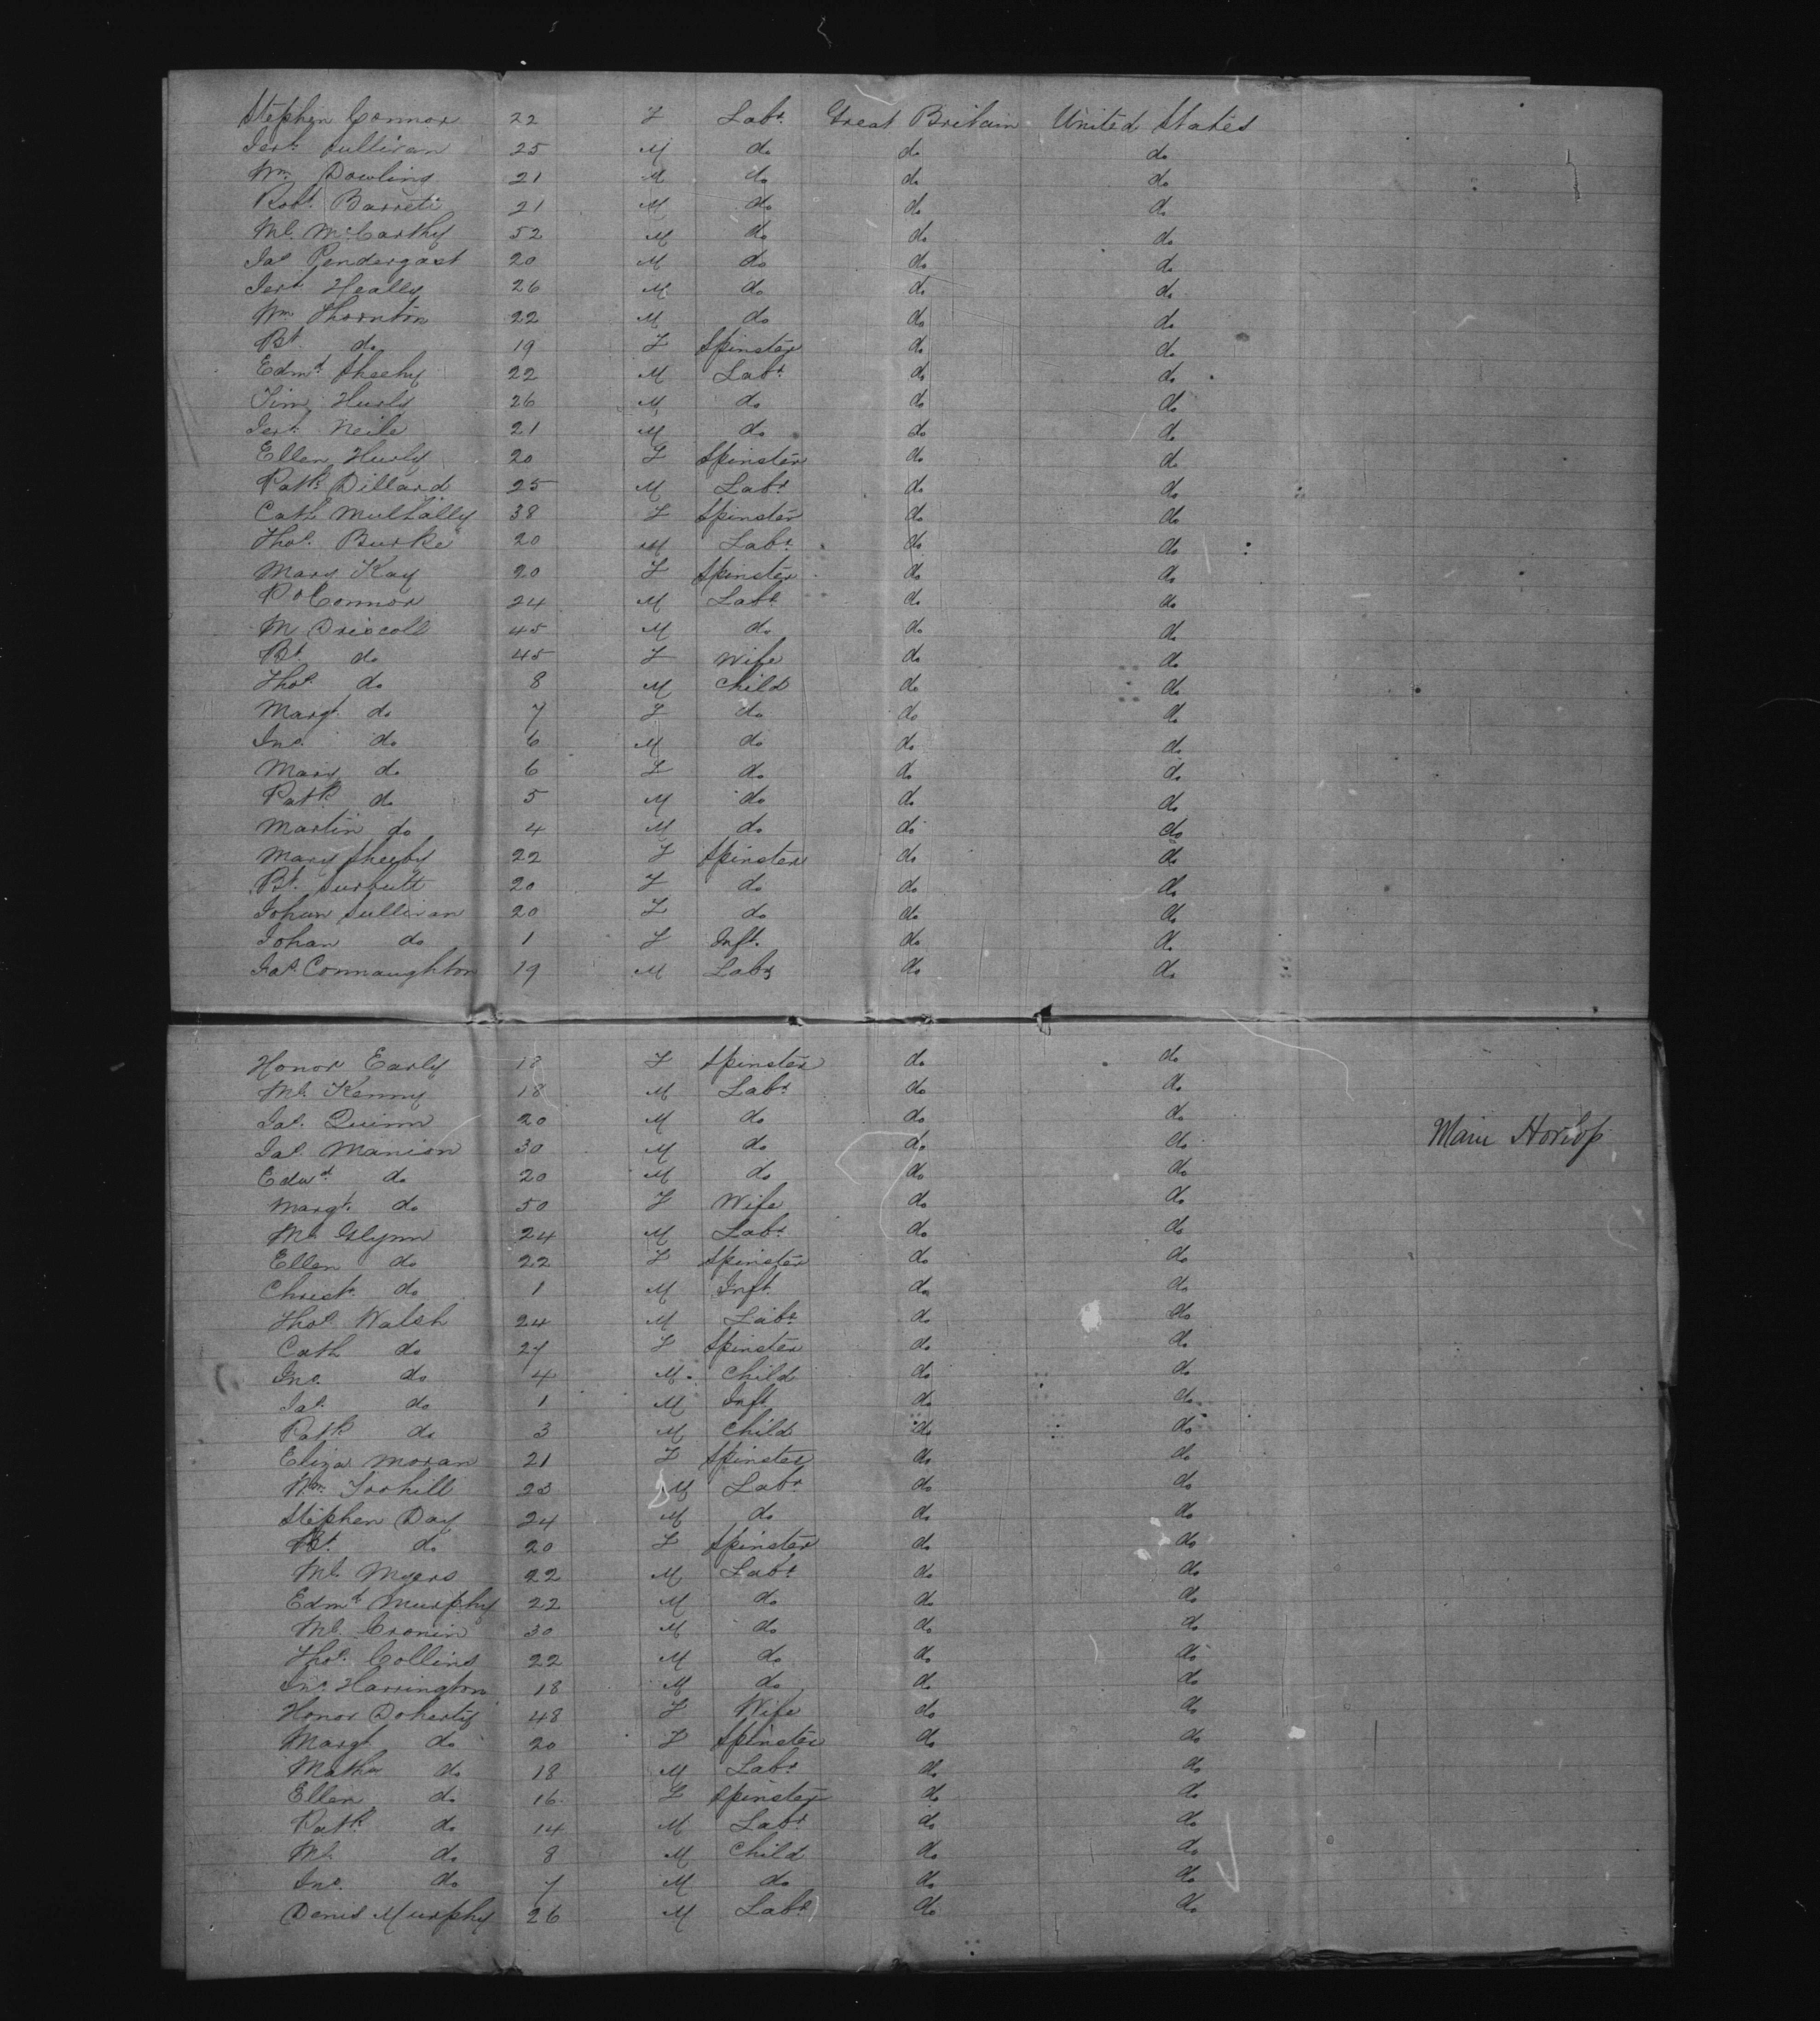 Stephen Connor 22 F Labr. Great Britain United States
Jerh. Sullivan 25 M do do do
Wm. Dowling 21 M do do do
Robt. Barrett 21 M do do do
Ml. McCarthy 52 M do do do
Jas. Pendergast 20 M do do do
Jerh. Heally 26 M do do do
Wm. Thornton 22 M do do do
Bt. do 19 F Spinster do do
Edmd. Sheehy 22 M Labr. do do
Tim Hurly 26 M do do do
Jerh. Neile 21 M do do do
Ellen Hurly 20 F Spinster do do
Patk. Dillard 25 M Labr. do do
Cath Mulhally 38 F Spinster do do
Thos. Burke 20 M Labr. do do
Mary Kay 20 F Spinster do do
P. O'Connor 24 M Labr. do do
M Driscoll 45 M do do do
Bt. do 45 F Wife do do
Thos. do 8 M Child do do
Margt. do 7 F do do do
Jno. do 6 M do do do
Mary do 6 F do do do
Patk. do 5 M do do do
Martin do 4 M do do do
Mary 22 F Spinster do do
Bt. 20 F do do do
Johan Sullivan 20 F do do do
Johan do 1 F Inft. do do
Jas. Connaughton 19 M Labr do do
Honor Early 18 F Spinster do do
Ml. Kenny 18 M Labr. do do
Jas. Quinn 20 M do do do
Jas. Manion 30 M do do do
Main
Edwd. do 20 M do do do
Margt. do 50 F Wife do do
Ml. Glynn 24 M Labr. do do
Ellen do 22 F Spinster do do
Christr. do 1 M Inft. do do
Thos. Walsh 24 M Labr. do do
Cath do 27 F Spinster do do
Jno. do 4 M Child do do
Jas. do 1 M Inft do do
Patk do 3 M Child do do
Eliza Moran 21 F Spinster do do
Wm. Frohill 23 M Labr. do do
Stephen Day 24 M do do do
Bt. do 20 F Spinster do do
Ml. Myers 22 M Labr. do do
Edmd. Murphy 22 M do do do
Ml. Cronin 30 M do do do
Thos. Collins 22 M do do do
Jno. Harrington 18 M do do do
Honor Doherty 48 F Wife do do
Margt. do 20 F Spinster do do
Mathw do 18 M Labr. do do
Ellen do 16 F Spinster do do
Patk. do 14 M Labr. do do
Ml. do 8 M Child do do
Jno. do 7 M do do do
Denis Murphy 26 M Labr. do do